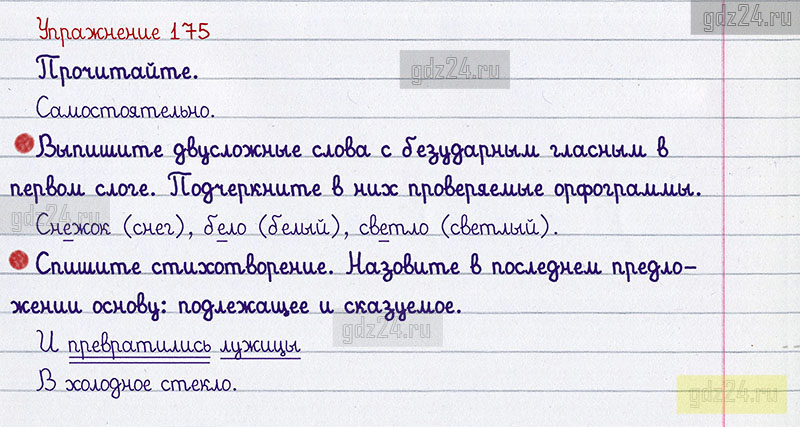 gdz24.ru
Упражнение 175
gdz24.ru
Прочитайте.
Самостоятельно.
Выпишите двусложные слова с безударным гласным в
первом слоге. Подчеркните в них проверяемые орфограммы.
gdz24.ru
Снежок (снег), бело (белый), светло (светлый).
Спишите стихотворение. Назовите в последнем предло-
жении основу: подлежащее и сказуемое.
gdz24.ru
И превратились лужицы
В холодное стекло.
gdz24.ru